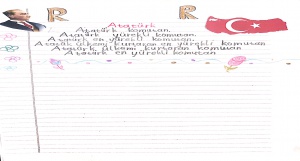 R R
Atatürk
Atatürk komutan.
Atatürk yürekli komutan.
Atatürk en yürekli komutan.
Atatürk ülkeyi kurtaran en yürekli komutan
Atatürk ülkemi kurtaran komutan
Atatürk en yürekli komutan